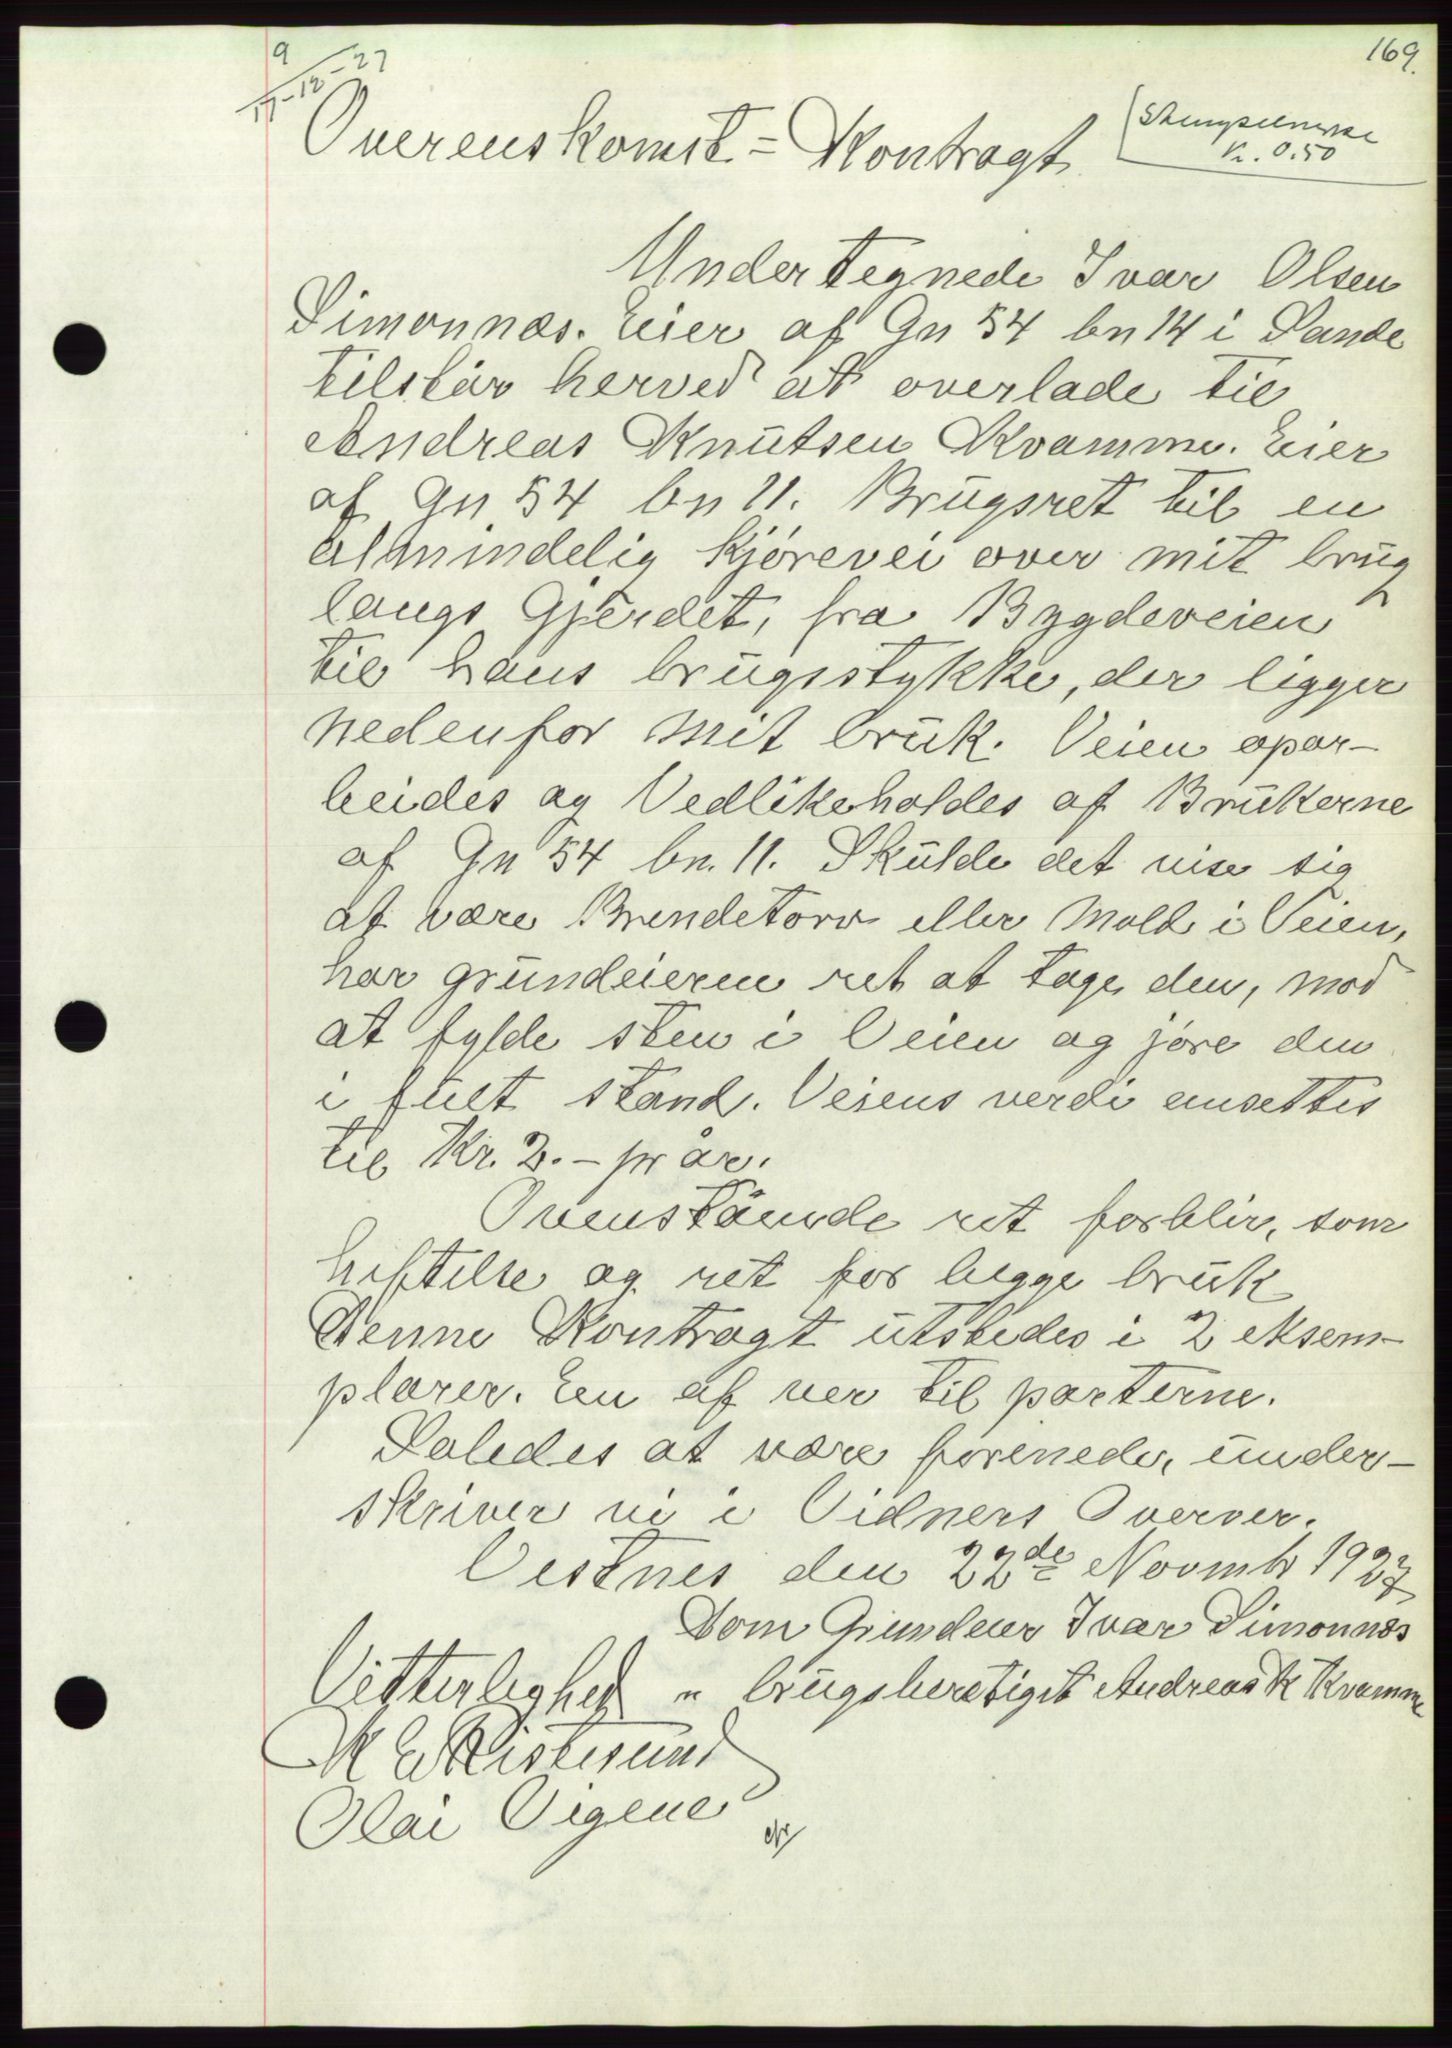 9
17-12-27
169.
Overenskomst = Kontragt
Stempelmerke
Kr. 0.50
Undertegnede Ivar Olsen
Simonnæs. Eier af Gn 54 bn 14 i Sande
tilstår herved at overlade til
Andreas Knutsen Kvamme. Eier
af Gn 54 bn 11. Brugsret til en
almindelig kjørevei over mit brug
langs Gjerdet, fra Bygdeveien
til hans brugsstykke, der ligger
nedenfor mit bruk. Veien opar-
beides og Vedlikeholdes af Brukerne
af Gn 54 bn. 11. Skulde det vise sig
at være Brendetorv eller Mold i Veien,
har grundeieren ret at tage den, mod
at fylde sten i Veien og jøre den
i fult stand. Veiens verdi ansettes
til Kr. 2.- pr år.
Ovenstånde ret forblir, som
heftelse og ret for begge bruk
Denne Kontragt utstedes i 2 eksem-
plarer. En af ver til parterne.
Saledes at være forenede, under-
skriver vi i Vidners Overver.
Vestnes den 22de Novmb 1927
Som Grundeier Ivar Simonnæs
Vitterlighed " brugsberetiget Andreas K Kvamme
K E Kistesund
Olai Vigene